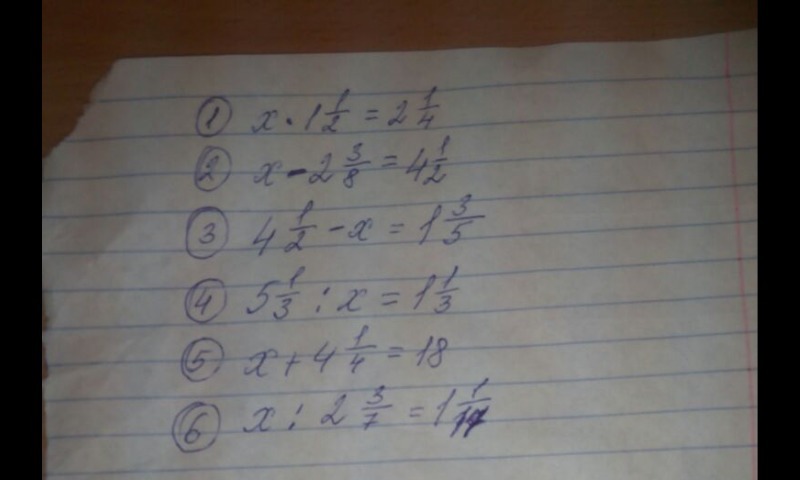 ① x · 1 1/2 = 2 1/4
② x - 2 3/8 = 4 1/2
③ 4 1/2 - x = 1 3/5
④ 5 1/3 : x = 1 1/3
⑤ x + 4 1/4 = 18
⑥ x : 2 3/7 = 1